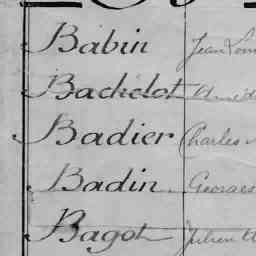 Babin Jean Lou
Bachelot Améd
Badier Charles
Badin Georges
Bagot Julien